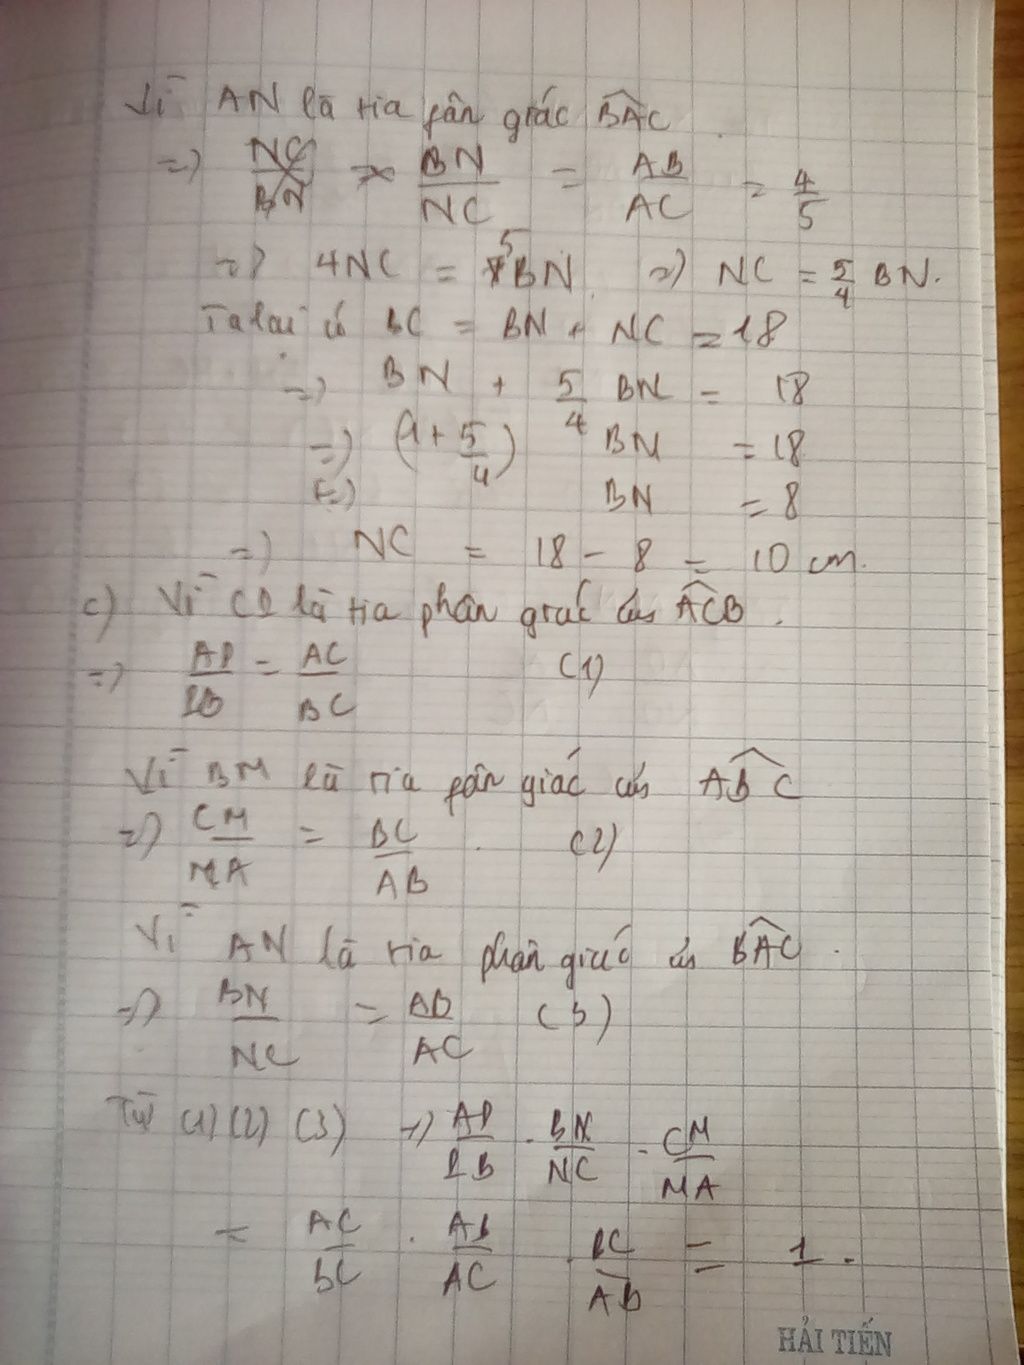 Vì AN là tia fân giác BAC
=) NC/BN = BN/NC = AB/AC = 4/5
=) 4NC = 5BN =) NC = 5/4 BN.
Ta lại có BC = BN + NC = 18
=) BN + 5/4 BN = 18
=) (1 + 5/4) BN = 18
(=) BN = 8
=) NC = 18 - 8 = 10 cm.
c) Vì CP là tia phân giác của ACB.
=) AP/PB = AC/BC (1)
Vì BM là tia fân giác của ABC
=) CM/MA = BC/AB (2)
Vì AN là tia phân giác của BAC.
=) BN/NC = AB/AC (3)
Từ (1) (2) (3) =) AP/PB . BN/NC . CM/MA
= AC/BC . AB/AC . BC/AB = 1.
HẢI TIẾN